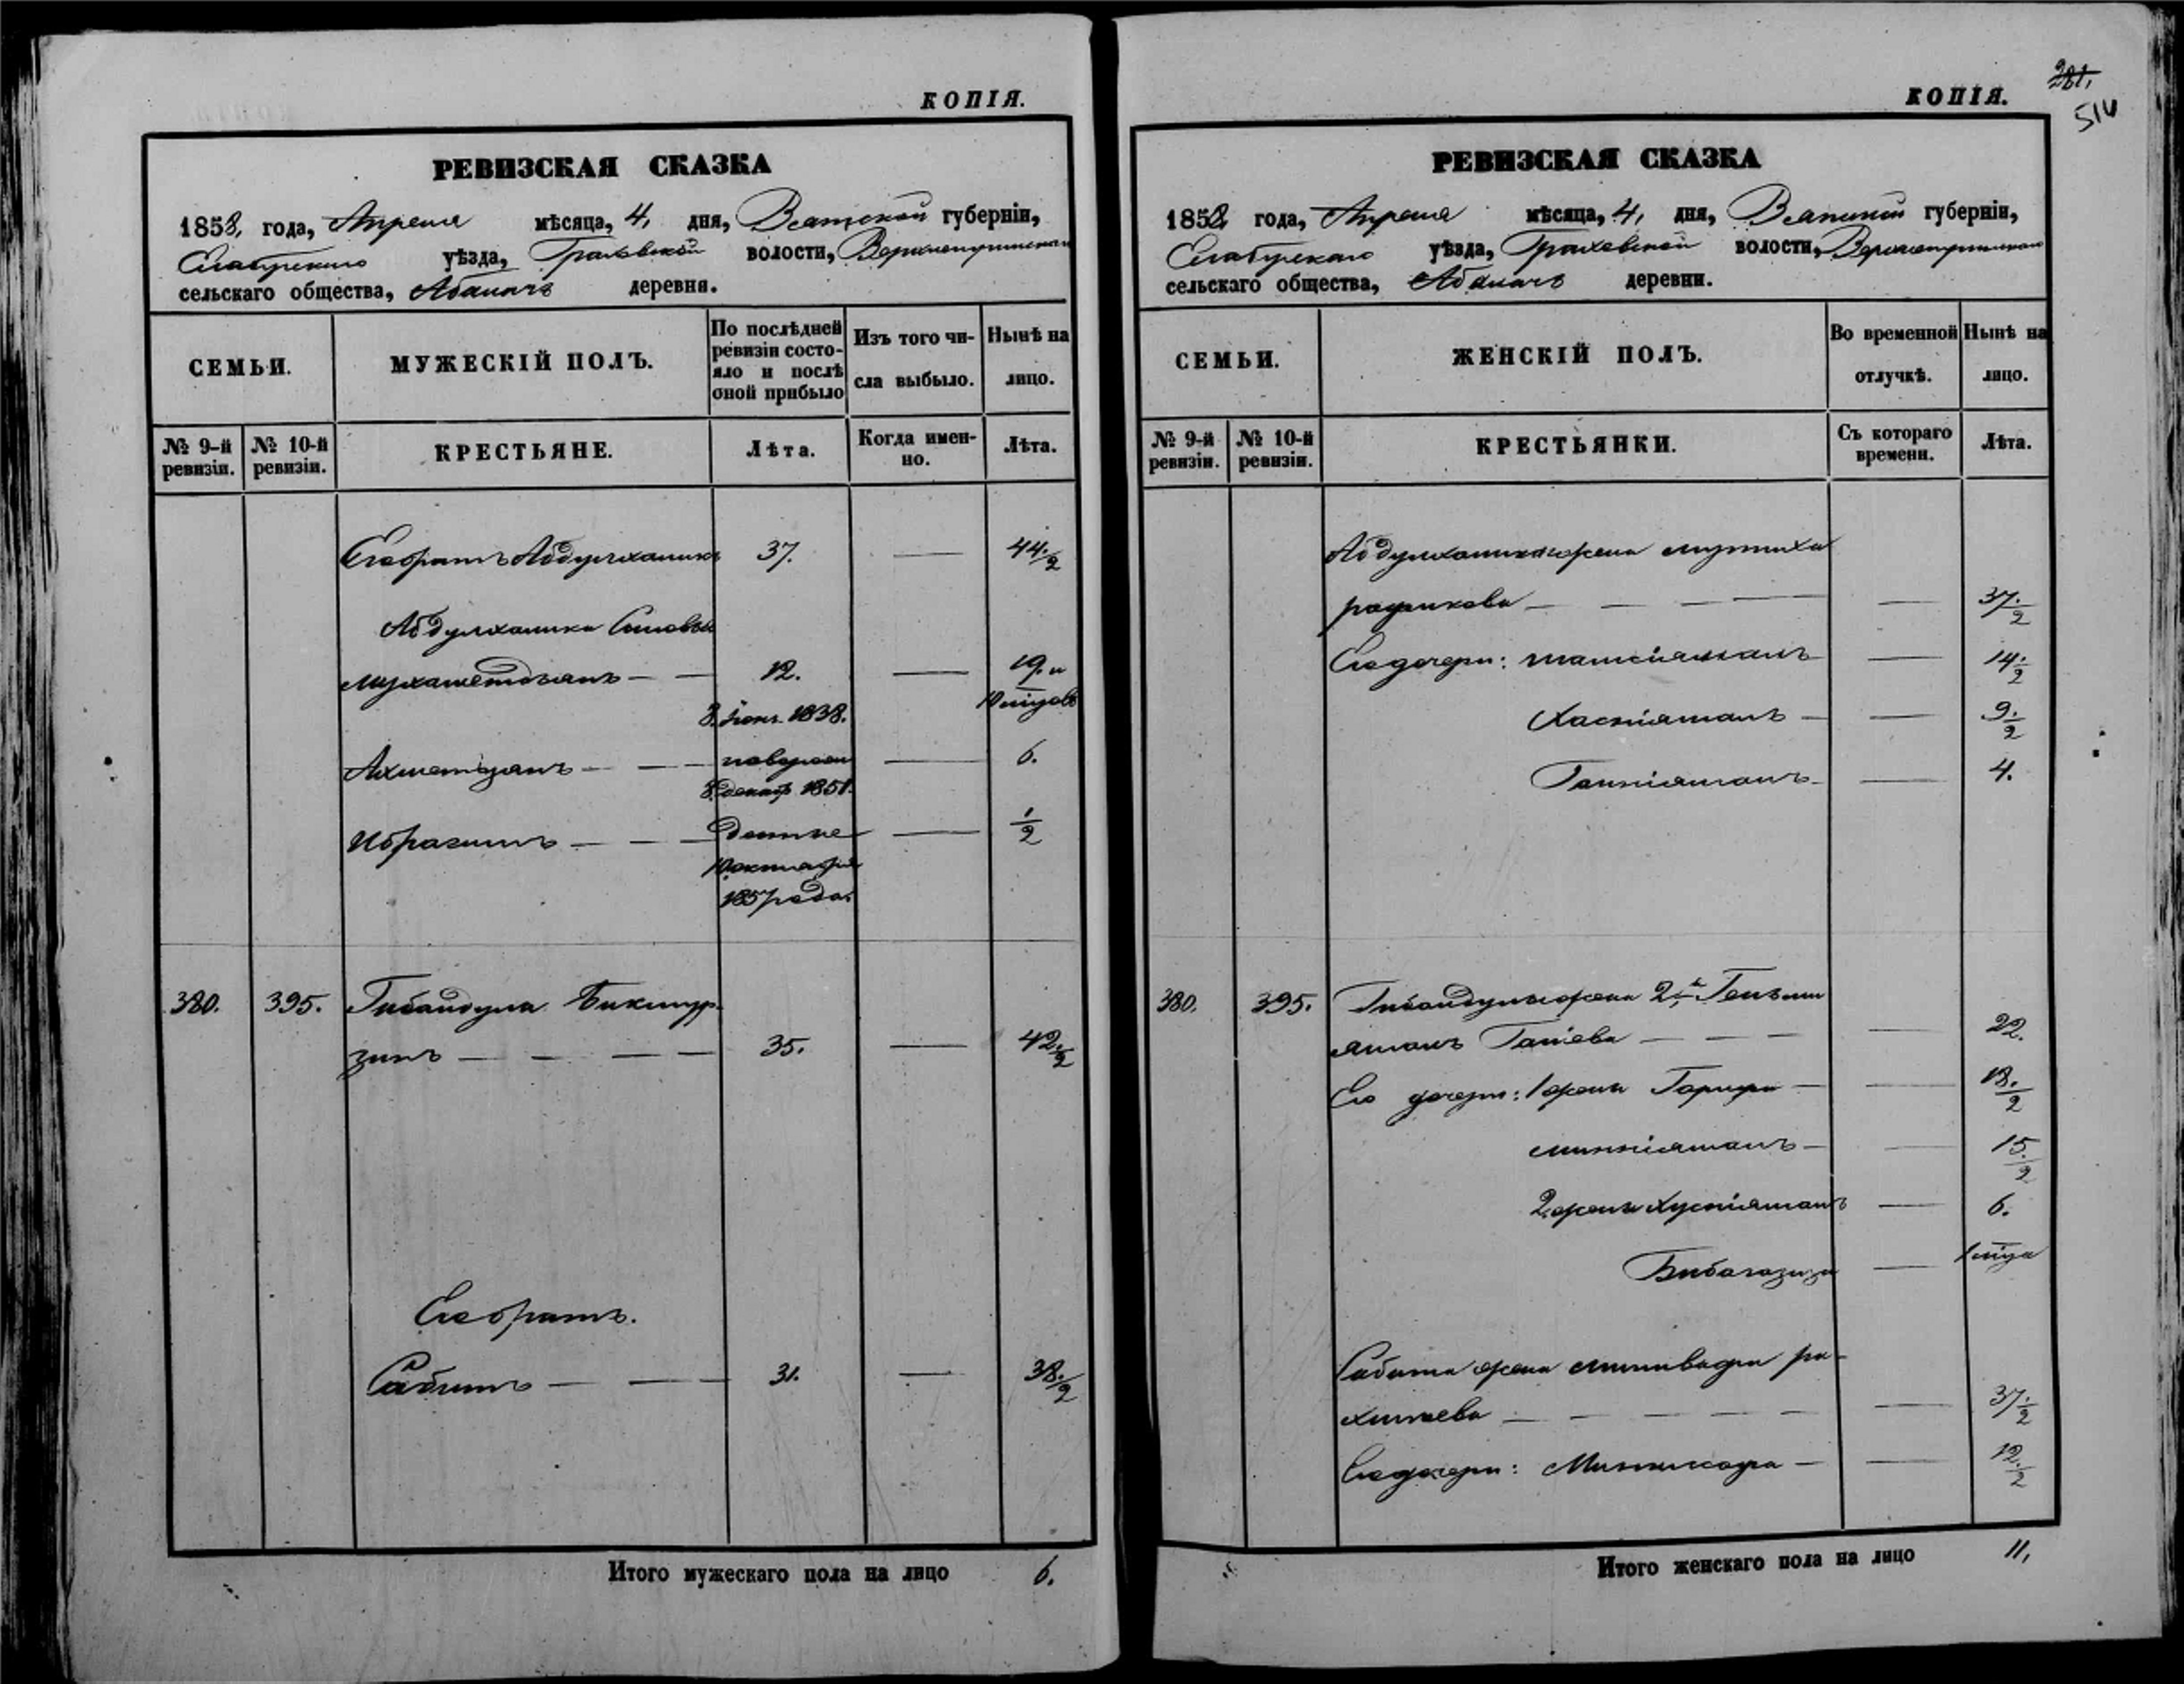 КОПІЯ.
РЕВИЗСКАЯ СКАЗКА
1858, года, Апреля мѣсяца, 4, дня, Вятской губерніи,
Елабужскаго уѣзда, Граховской волости,
сельскаго общества, Абалачъ деревня.
СЕМЬИ.
МУЖЕСКІЙ ПОЛЪ.
По послѣдней ревизіи состо-
яло и послѣ оной прибыло
Изъ того чи-
сла выбыло.
Нынѣ на
лицо.
№ 9-й ревизіи.
№ 10-й ревизіи.
КРЕСТЬЯНЕ.
Лѣта.
Когда имен-
но.
Лѣта.
Его братъ Абдулхаликъ 37. — 44 1/2
Абдулхалика Сыновья
Мухаметзянъ — — 12. — 19. и
8. 1838. 10 мѣсяцовъ
Ахметзянъ — — — 6.
8 декаб 1851.
Ибрагимъ — — — — 1/2
10 октября
1857 года.
380. 395. Гибайдула Бикмур-
зинъ — — — — 35. — 42 1/2
Его братъ.
Сабитъ — — — 31. — 38 1/2
Итого мужескаго пола на лицо 6.
281.
514
КОПІЯ.
РЕВИЗСКАЯ СКАЗКА
1858, года, Апреля мѣсяца, 4, дня, Вятской губерніи,
Елабужскаго уѣзда, Граховской волости,
сельскаго общества, Абалачъ деревни.
СЕМЬИ.
ЖЕНСКІЙ ПОЛЪ.
Во временной
отлучкѣ.
Нынѣ на
лицо.
№ 9-й ревизіи.
№ 10-й ревизіи.
КРЕСТЬЯНКИ.
Съ котораго
времени.
Лѣта.
Абдулхалика жена
— — — — — 37 1/2
Его дочери: — 14 1/2
Хаснiямалъ — — 9 1/2
— 4.
380. 395. Гибайдулы жена 2я
ямалъ Галіева — — — — 22.
Его дочери: 1 жены — — 18 1/2
Минніямалъ — — 15 1/2
2 жены Хуснiямалъ — 6.
Бибагазиза — 1 мѣсяца
Сабита жена Миннибадра ра-
химева — — — — — — 37 1/2
Его дочери: — — 12 1/2
Итого женскаго пола на лицо 11,